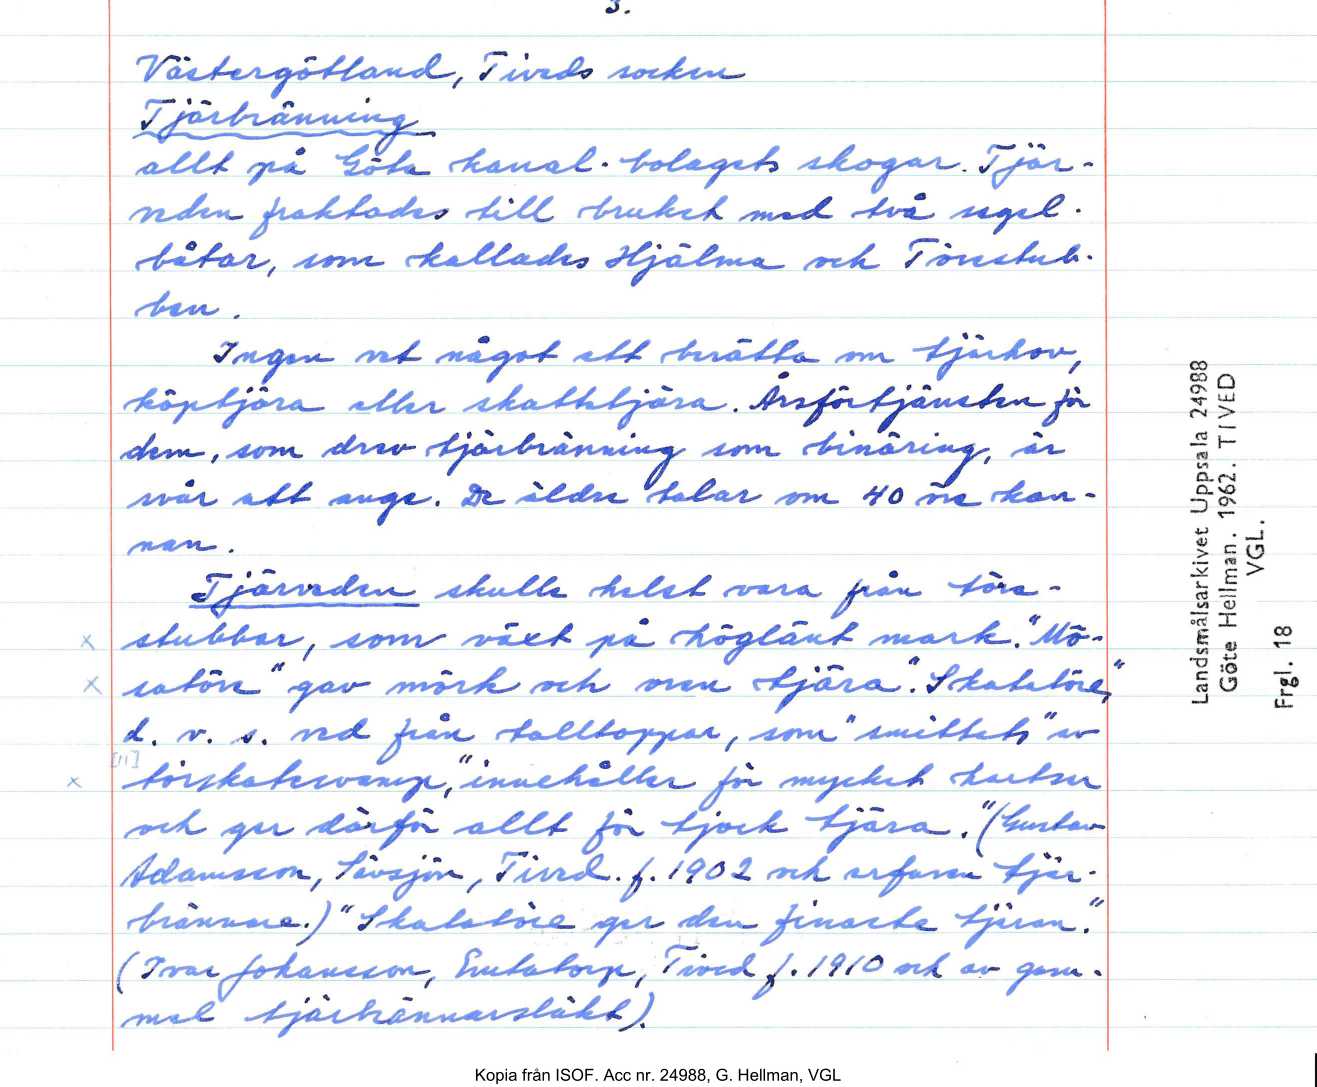 3.
Västergötland, Tiveds socken
Tjärbränning
allt på Göta kanal-bolagets skogar. Tjär-
veden fraktades till bruket med två segel-
båtar, som kallades Hjälma och Törestub-
ben.
Ingen vet något att berätta om tjärhov,
köptjära eller skattetjära. Årsförtjänsten för
dem, som drev tjärbränning som binäring, är
svår att ange. De äldre talar om 40 öre kan-
nan.
Tjärveden skulle helst vara från töre-
x stubbar, som växt på höglänt mark. "Mo-
x satöre" gav mörk och oren tjära". "Skatatöre,"
d. v. s. ved från talltoppar, som "smittats" av
[11]
x törskatesvamp, "innehåller för mycket hartser
och ger därför allt för tjock tjära." (Gustav
Adamsson, Sävsjön, Tived. f. 1902 och erfaren tjär-
brännare.) "Skatatöre ger den finaste tjäran."
(Ivar Johansson, Tived f. 1910 och av gam-
mal tjärbrännarsläkt).
Landsmålsarkivet Uppsala 24988
Göte Hellman. 1962. TIVED
VGL.
Frgl. 18
Kopia från ISOF. Acc nr. 24988, G. Hellman, VGL